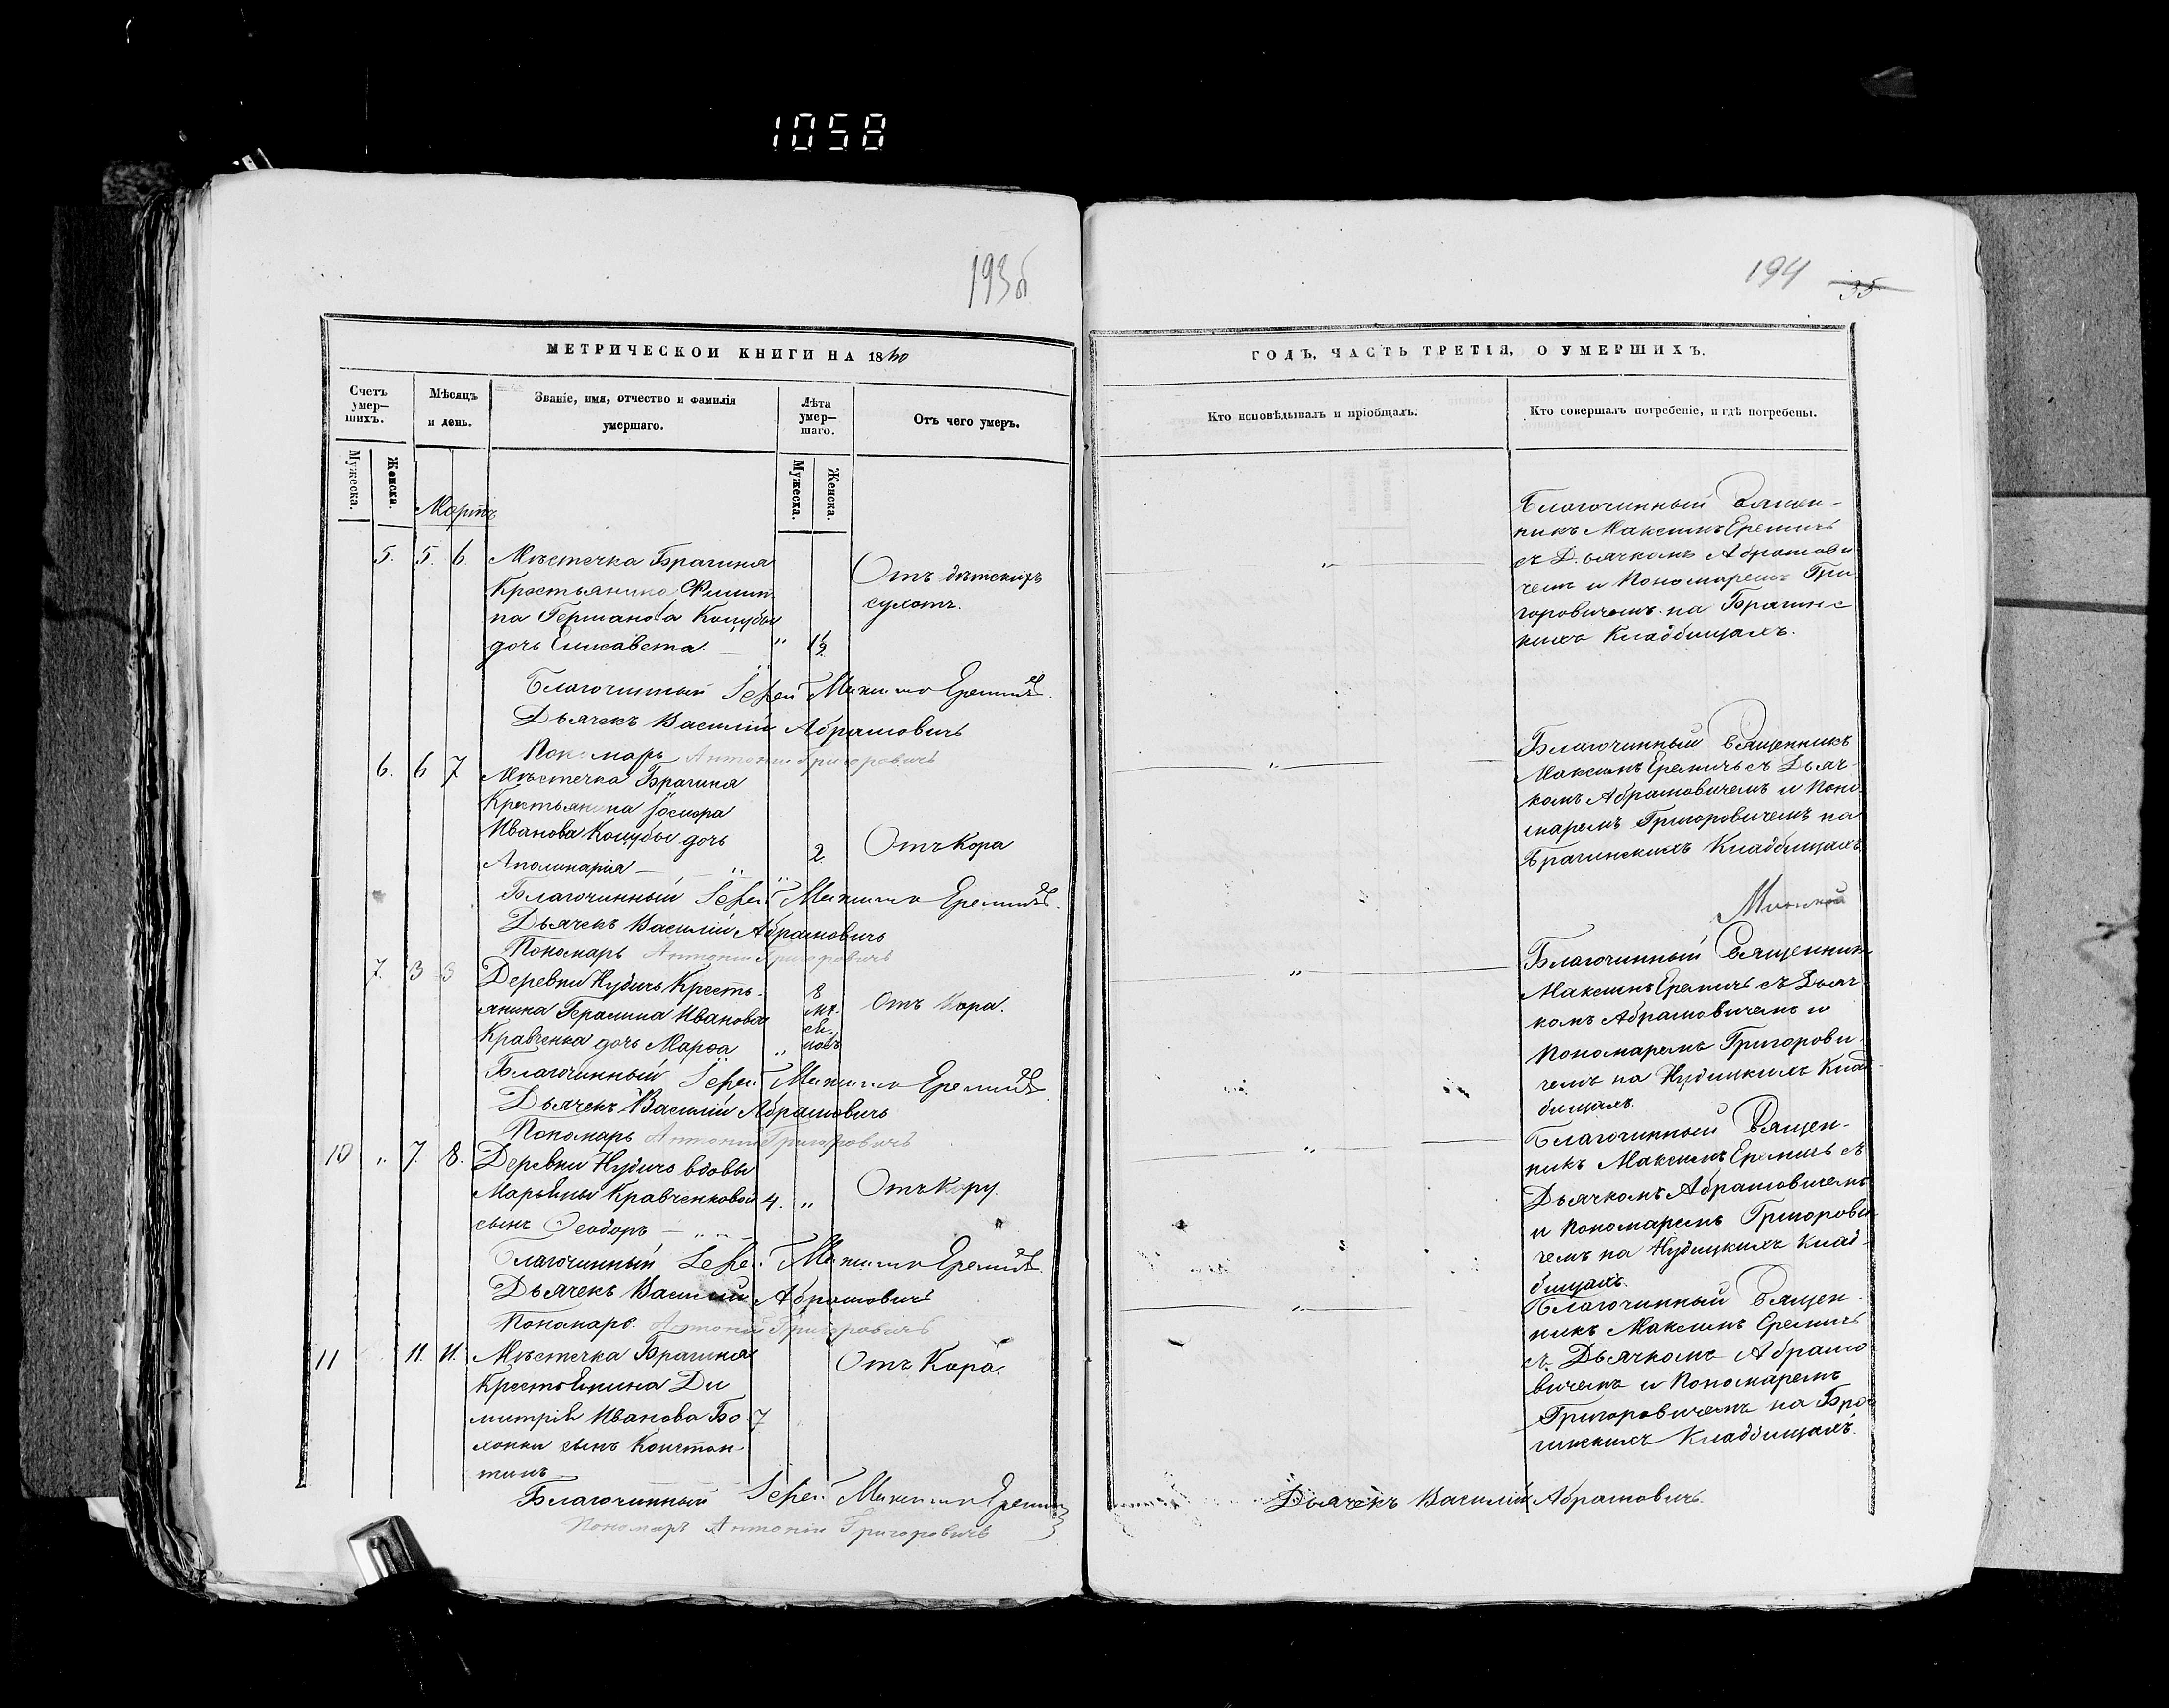 1058
193б
МЕТРИЧЕСКОЙ КНИГИ НА 18
Счетъ умер-
шихъ.
Мѣсяцъ
и день.
Званіе, имя, отчество и фамилія
умершаго.
Лѣта
умер-
шаго.
Отъ чего умеръ.
Мужеска.
Женска.
Мужеска.
Женска.
Мартъ
5. 5. 6. Мѣстечка Брагина
Крестьянина Филип-
па Германова Коцубы
дочь Елисавета. " 1½
Отъ дѣтскихъ
сухотъ.
Благочинный Іерей Максимъ Еремичъ.
Дьячекъ Василій Абрамовичъ
Пономарь Антоній Григоровичъ
6. 6 7 Мѣстечка Брагина
Крестьянина Іосифа
Иванова Коцубы дочь
Аполинарія 2. Отъ Кора
Благочинный Іерей Максимъ Еремичъ.
Дьячекъ Василій Абрамовичъ
Пономарь Антоній Григоровичъ
7. 3 Деревни Нудичъ Кресть-
янина Герасима Иванова
Кравченка дочь Марѳа " 8 мѣ-
ся-
цовъ
Отъ Кора.
Благочинный Іерей Максимъ Еремичъ.
Дьячекъ Василій Абрамовичъ
Пономарь Антоній Григоровичъ
10 " 7. 8. Деревни Нудичъ вдовы
Марьяны Кравченковой 4. " Отъ Кору.
сынъ Ѳеодоръ
Благочинный Іерей Максимъ Еремичъ.
Дьячекъ Василій Абрамовичъ
Пономарь. Антоній Григоровичъ
11 11. 11. Мѣстечка Брагина
Крестьянина Ди
митрія Иванова Бо 7
хонки сынъ Констан-
тинъ
Отъ Кора.
Благочинный Іерей Максимъ Еремичъ
Пономарь Антоній Григоровичъ
194 35
ГОДЪ, ЧАСТЬ ТРЕТІЯ, О УМЕРШИХЪ.
Кто исповѣдывалъ и пріобщалъ.
Кто совершалъ погребеніе, и гдѣ погребены.
Благочинный Священ-
никъ Максимъ Еремичъ
съ Дьячкомъ Абрамови
чемъ и Пономаремъ Гри
горовичемъ на Брагинс
кихъ Кладбищахъ.
Благочинный Священникъ
Максимъ Еремичъ съ Дьяч-
комъ Абрамовичемъ и Поно
маремъ Григоровичемъ на
Брагинскихъ Кладбищахъ
Благочинный Священникъ
Максимъ Еремичъ съ Дьяч-
комъ Абрамовичемъ и
Пономаремъ Григорови-
чемъ на Нудицкихъ Клад-
бищахъ.
Благочинный Священ-
никъ Максимъ Еремичъ съ
Дьячкомъ Абрамовичемъ
и Пономаремъ Григорови
чемъ на Нудицкихъ Клад-
бищахъ.
Благочинный Священ-
никъ Максимъ Еремичъ
съ Дьячкомъ Абрамо
вичемъ и Пономаремъ
Григоровичемъ на Бра
гинскихъ Кладбищахъ.
Дьячекъ Василій Абрамовичъ.